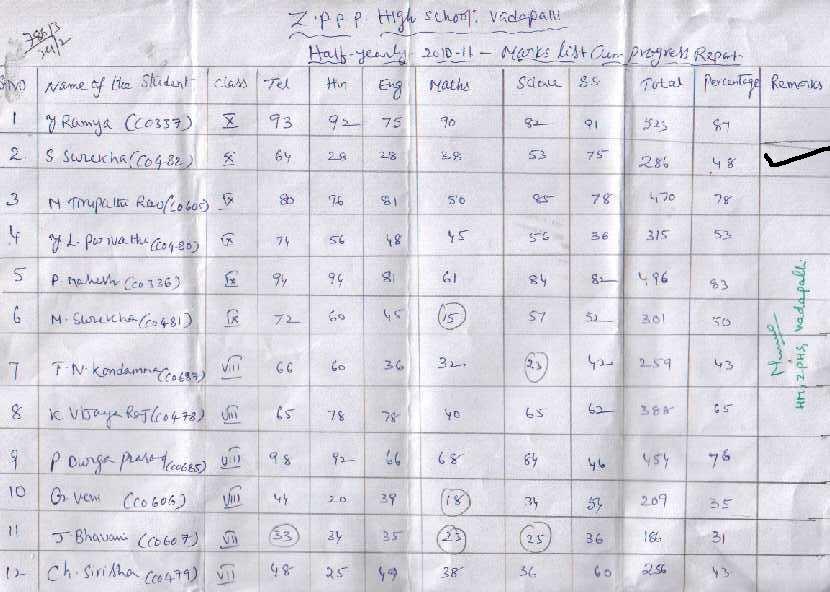 Z.P.P.P. High school. Vadapalli
Half-yearly 2010-11 - Marks List Cum progress Report
S.NO Name of the Student class Tel Hin Eng Maths Science S.S Total Percentage Remarks
1 Y Ramya (C0337) X 93 92 75 90 82 91 523 87
2 S Surekha (C0482) X 64 28 28 38 53 75 286 48
3 N Tirupathi Rao (C0605) IX 80 76 81 50 85 78 470 78
4 Y L. Parvathi (C0480) IX 74 56 48 45 56 36 315 53
5 P. Mahesh (C0336) IX 94 94 81 61 84 82 496 83
6 M. Surekha (C0481) IX 72 60 45 15 57 52 301 50
7 T. N. Kondamma (C0687) VIII 66 60 36 32 23 42 259 43
8 K Vijaya Raj (C0478) VIII 65 78 78 40 65 62 388 65
9 P Durga prasad (C0685) VIII 98 92 66 68 84 46 454 76
10 G. Veni (C0606) VIII 44 20 39 18 34 54 209 35
11 J Bhavani (C0607) VII 33 34 35 23 25 36 186 31
12 Ch. Sirisha (C0479) VII 48 25 49 38 36 60 256 43
HM, Z.PHS, Vadapalli